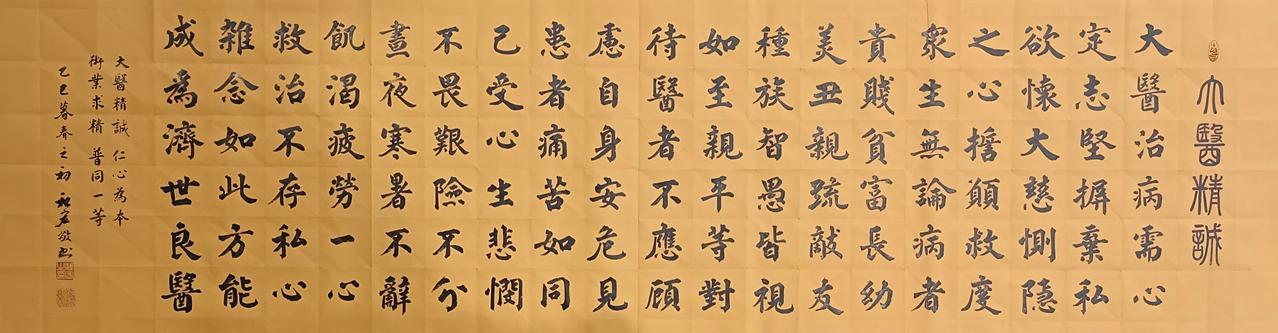 大醫精誠
大醫治病需心
定志堅摒棄私
欲懷大慈惻隱
之心擔願救度
衆生無論病者
貴賤貧富長幼
美丑親疏敵友
種族智愚皆視
如至親平等對
待醫者不應顧
慮自身安危見
患者痛苦如同
己受心生悲憫
不畏艱險不分
晝夜寒暑不辭
飢渴疲勞一心
救治不存私心
雜念如此方能
成爲濟世良醫
大醫精誠 仁心為本
術業求精 普同一等
乙巳暮春之初 敬書